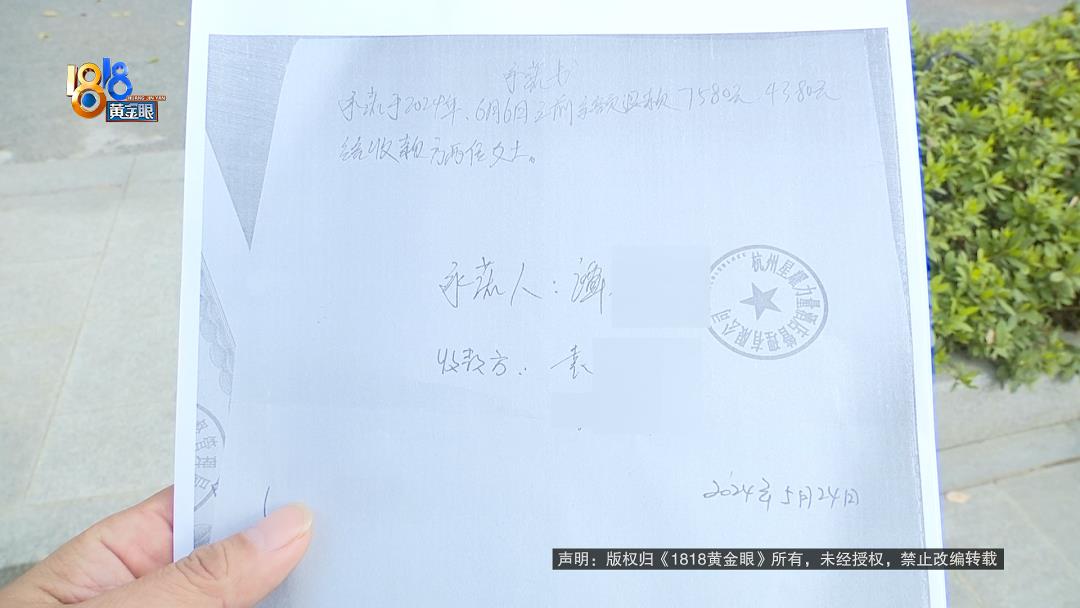 1818
HUANG JIN YAN
黄金眼
承诺书
承诺于2024年、6月6日之前全额退款 7580元 4380元
给收款方两位女士。
承诺人:谭
杭州星聚力量酒店管理有限公司
收款方: 袁
2024年5月24日
声明:版权归《1818黄金眼》所有,未经授权,禁止改编转载